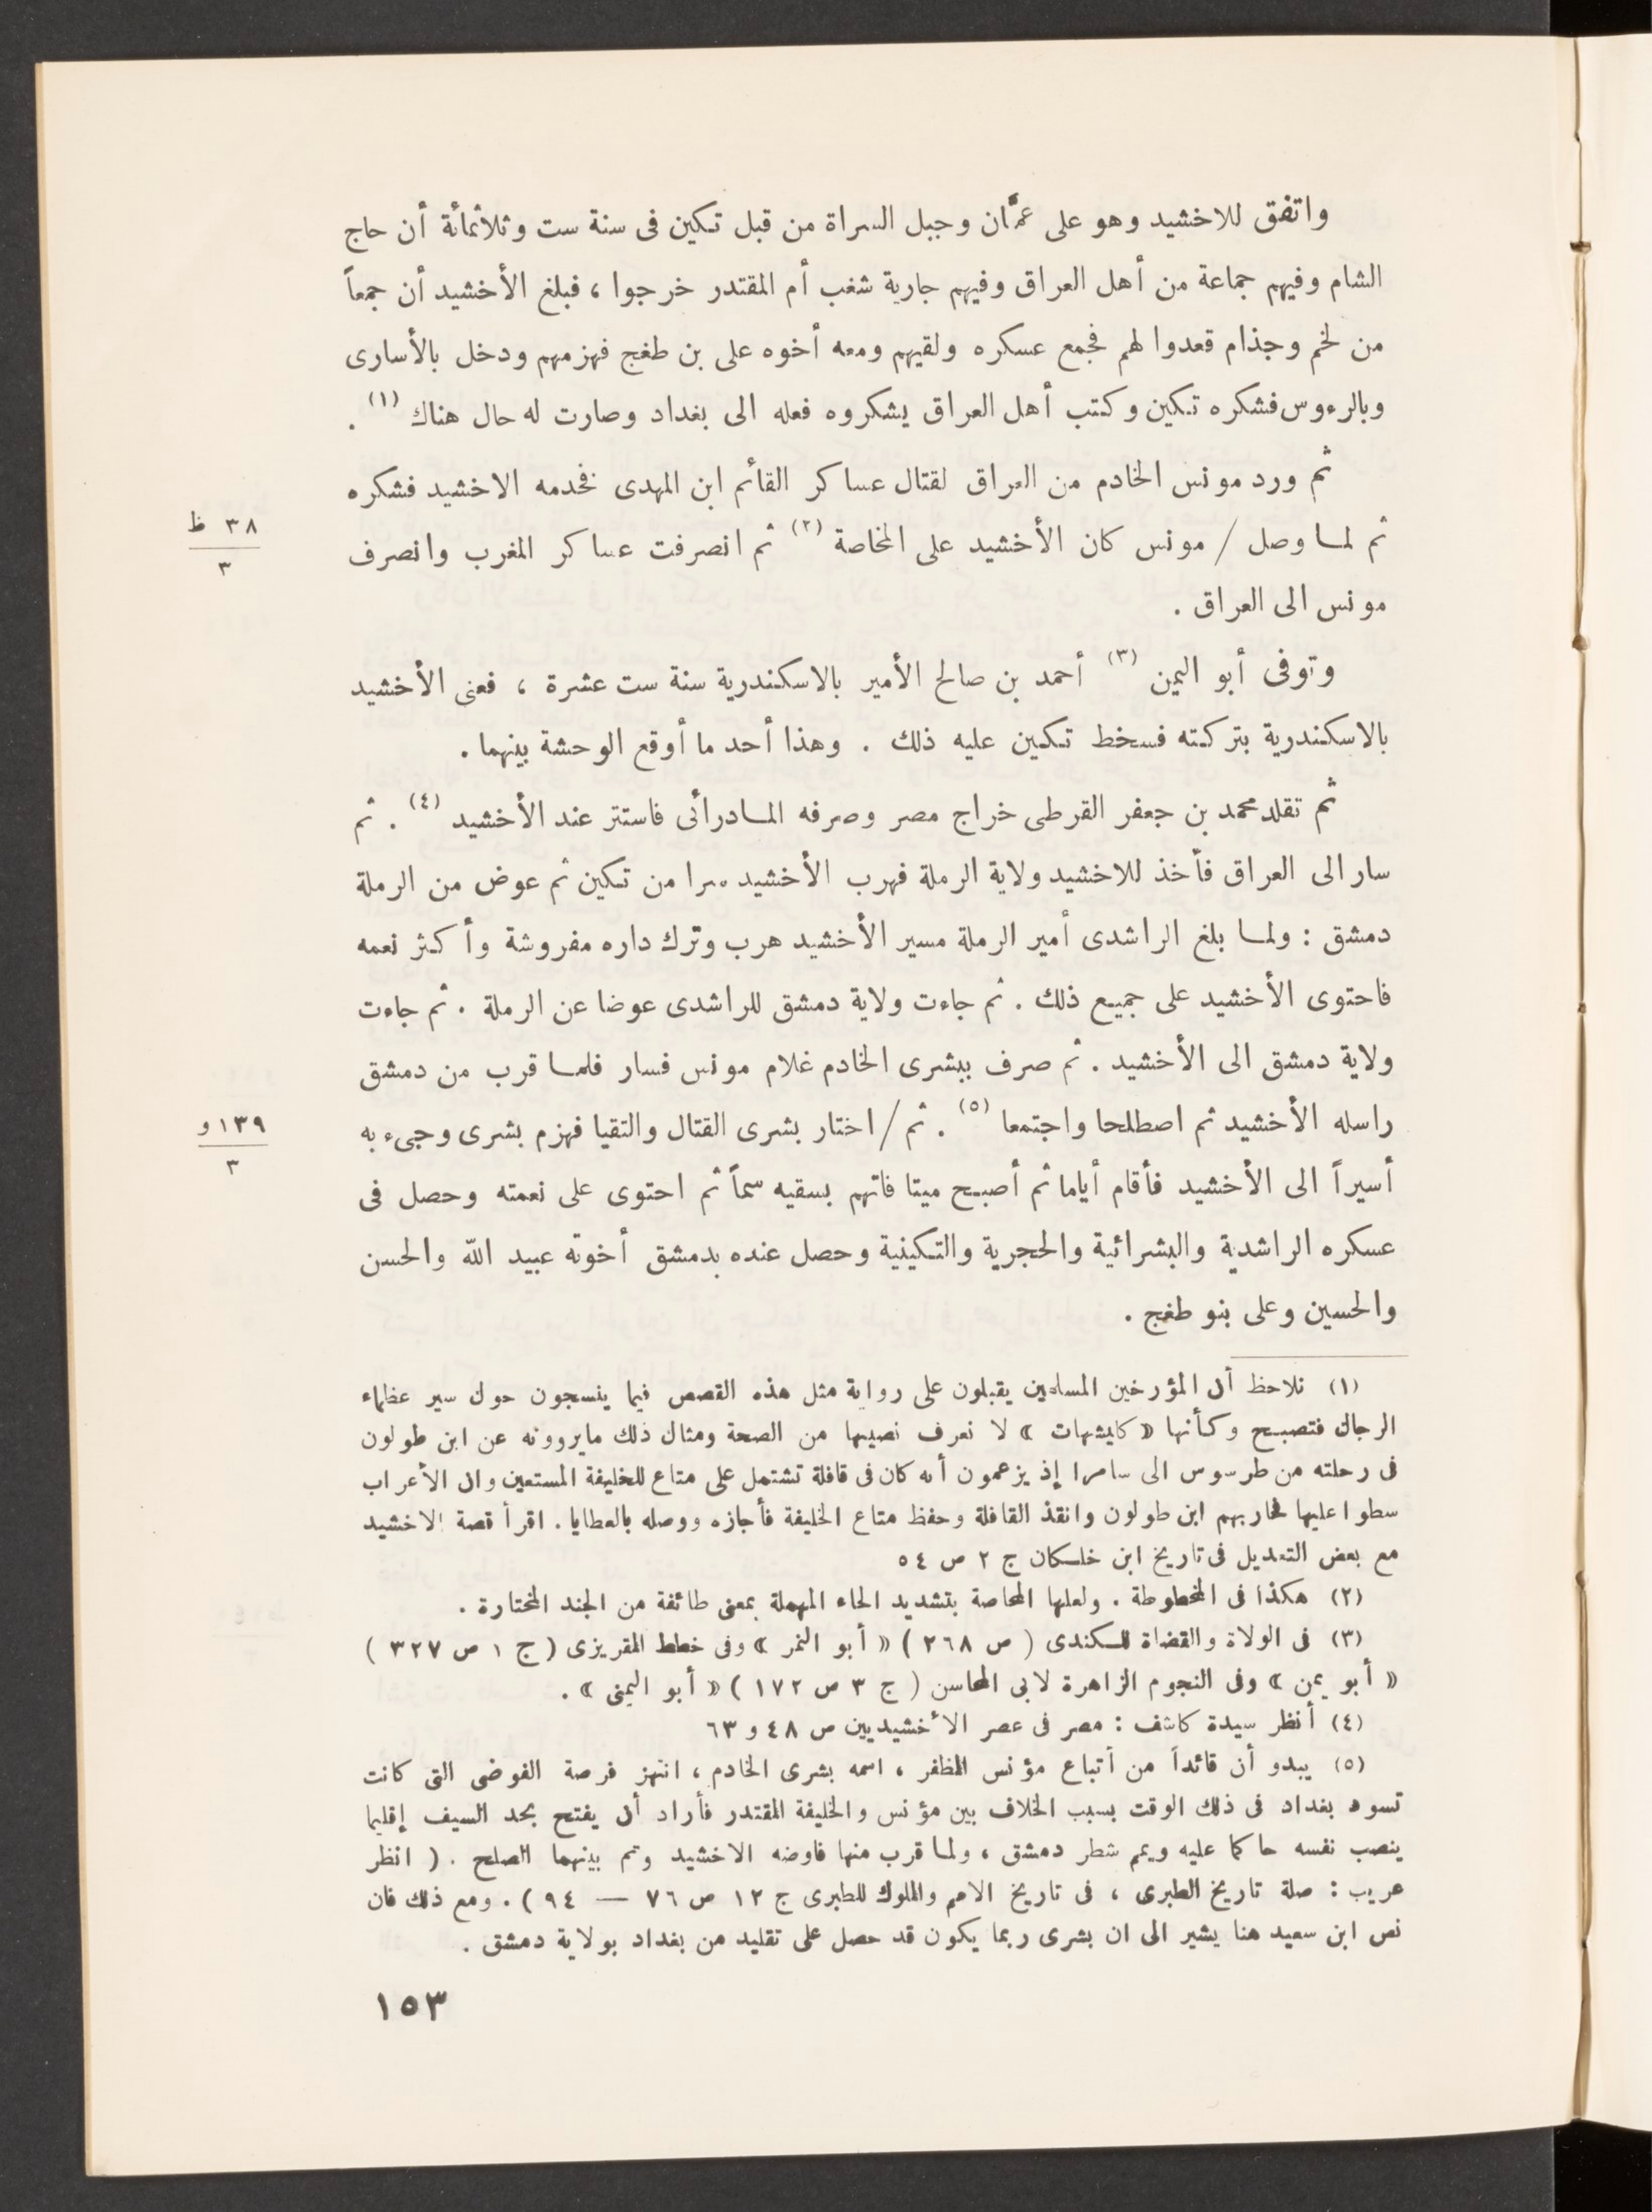 واتفق للاخشيد وهو على عمَّان وجبل السراة من قبل تكين فى سنة ست وثلاثمائة أن حاج
الشام وفيهم جماعة من أهل العراق وفيهم جارية شغب أم المقتدر خرجوا ، فبلغ الأخشيد أن جمعاً
من لخم وجذام قعدوا لهم فجمع عسكره ولقيهم ومعه أخوه على بن طغج فهزمهم ودخل بالأسارى
وبالرءوس فشكره تكين وكتب أهل العراق يشكروه فعله الى بغداد وصارت له حال هناك (١) .
ثم ورد مونس الخادم من العراق لقتال عساكر القائم ابن المهدى فخدمه الاخشيد فشكره
ثم لما وصل / مونس كان الأخشيد على المخاصة (٢) ثم انصرفت عساكر المغرب وانصرف
٣٨ ظ
٣
مونس الى العراق .
وتوفى أبو اليمن (٣) أحمد بن صالح الأمير بالاسكندرية سنة ست عشرة ، فعنى الأخشيد
بالاسكندرية بتركته فسخط تكين عليه ذلك . وهذا أحد ما أوقع الوحشة بينهما .
ثم تقلد محمد بن جعفر القرطى خراج مصر وصرفه المادرائى فاستتر عند الأخشيد (٤) . ثم
سار الى العراق فأخذ للاخشيد ولاية الرملة فهرب الأخشيد سرا من تكين ثم عوض من الرملة
دمشق : ولما بلغ الراشدى أمير الرملة مسير الأخشيد هرب وترك داره مفروشة وأكثر نعمه
فاحتوى الأخشيد على جميع ذلك . ثم جاءت ولاية دمشق للراشدى عوضا عن الرملة . ثم جاءت
ولاية دمشق الى الأخشيد . ثم صرف ببشرى الخادم غلام مونس فسار فلما قرب من دمشق
راسله الأخشيد ثم اصطلحا واجتمعا (٥) . ثم / اختار بشرى القتال والتقيا فهزم بشرى وجىء به
١٣٩ و
٣
أسيراً الى الأخشيد فأقام أياما ثم أصبح ميتا فاتهم بسقيه سماً ثم احتوى على نعمته وحصل فى
عسكره الراشدية والبشرائية والحجرية والتكينية وحصل عنده بدمشق أخوته عبيد الله والحسن
والحسين وعلى بنو طغج .
(١) نلاحظ أن المؤرخين المسلمين يقبلون على رواية مثل هذه القصص فيما ينسجون حول سير عظماء
الرجال فتصبح وكأنها « كليشهات » لا نعرف نصيبها من الصحة ومثال ذلك مايروونه عن ابن طولون
فى رحلته من طرسوس الى سامرا إذ يزعمون أنه كان فى قافلة تشتمل على متاع للخليفة المستعين وان الأعراب
سطوا عليها فحاربهم ابن طولون وانقذ القافلة وحفظ متاع الخليفة فأجازه ووصله بالعطايا . اقرأ قصة الاخشيد
مع بعض التعديل فى تاريخ ابن خلكان ج ٢ ص ٥٤
(٢) هكذا فى المخطوطة . ولعلها المحاصة بتشديد الحاء المهملة بمعنى طائفة من الجند المختارة .
(٣) فى الولاة والقضاة للكندى ( ص ٢٦٨ ) « أبو النمر » وفى خطط المقريزى ( ج ١ ص ٣٢٧ )
« أبو يمن » وفى النجوم الزاهرة لابى المحاسن ( ج ٣ ص ١٧٢ ) « أبو اليمنى » .
(٤) أنظر سيدة كاشف : مصر فى عصر الأخشيديين ص ٤٨ و ٦٣
(٥) يبدو أن قائداً من أتباع مؤنس المظفر ، اسمه بشرى الخادم ، انتهز فرصة الفوضى التى كانت
تسود بغداد فى ذلك الوقت بسبب الخلاف بين مؤنس والخليفة المقتدر فأراد أن يفتح بحد السيف إقليما
ينصب نفسه حاكما عليه ويمم شطر دمشق ، ولما قرب منها فاوضه الاخشيد وتم بينهما الصلح . ( انظر
عريب : صلة تاريخ الطبرى ، فى تاريخ الامم والملوك للطبرى ج ١٢ ص ٧٦ — ٩٤ ) . ومع ذلك فان
نص ابن سعيد هنا يشير الى ان بشرى ربما يكون قد حصل على تقليد من بغداد بولاية دمشق .
١٥٣